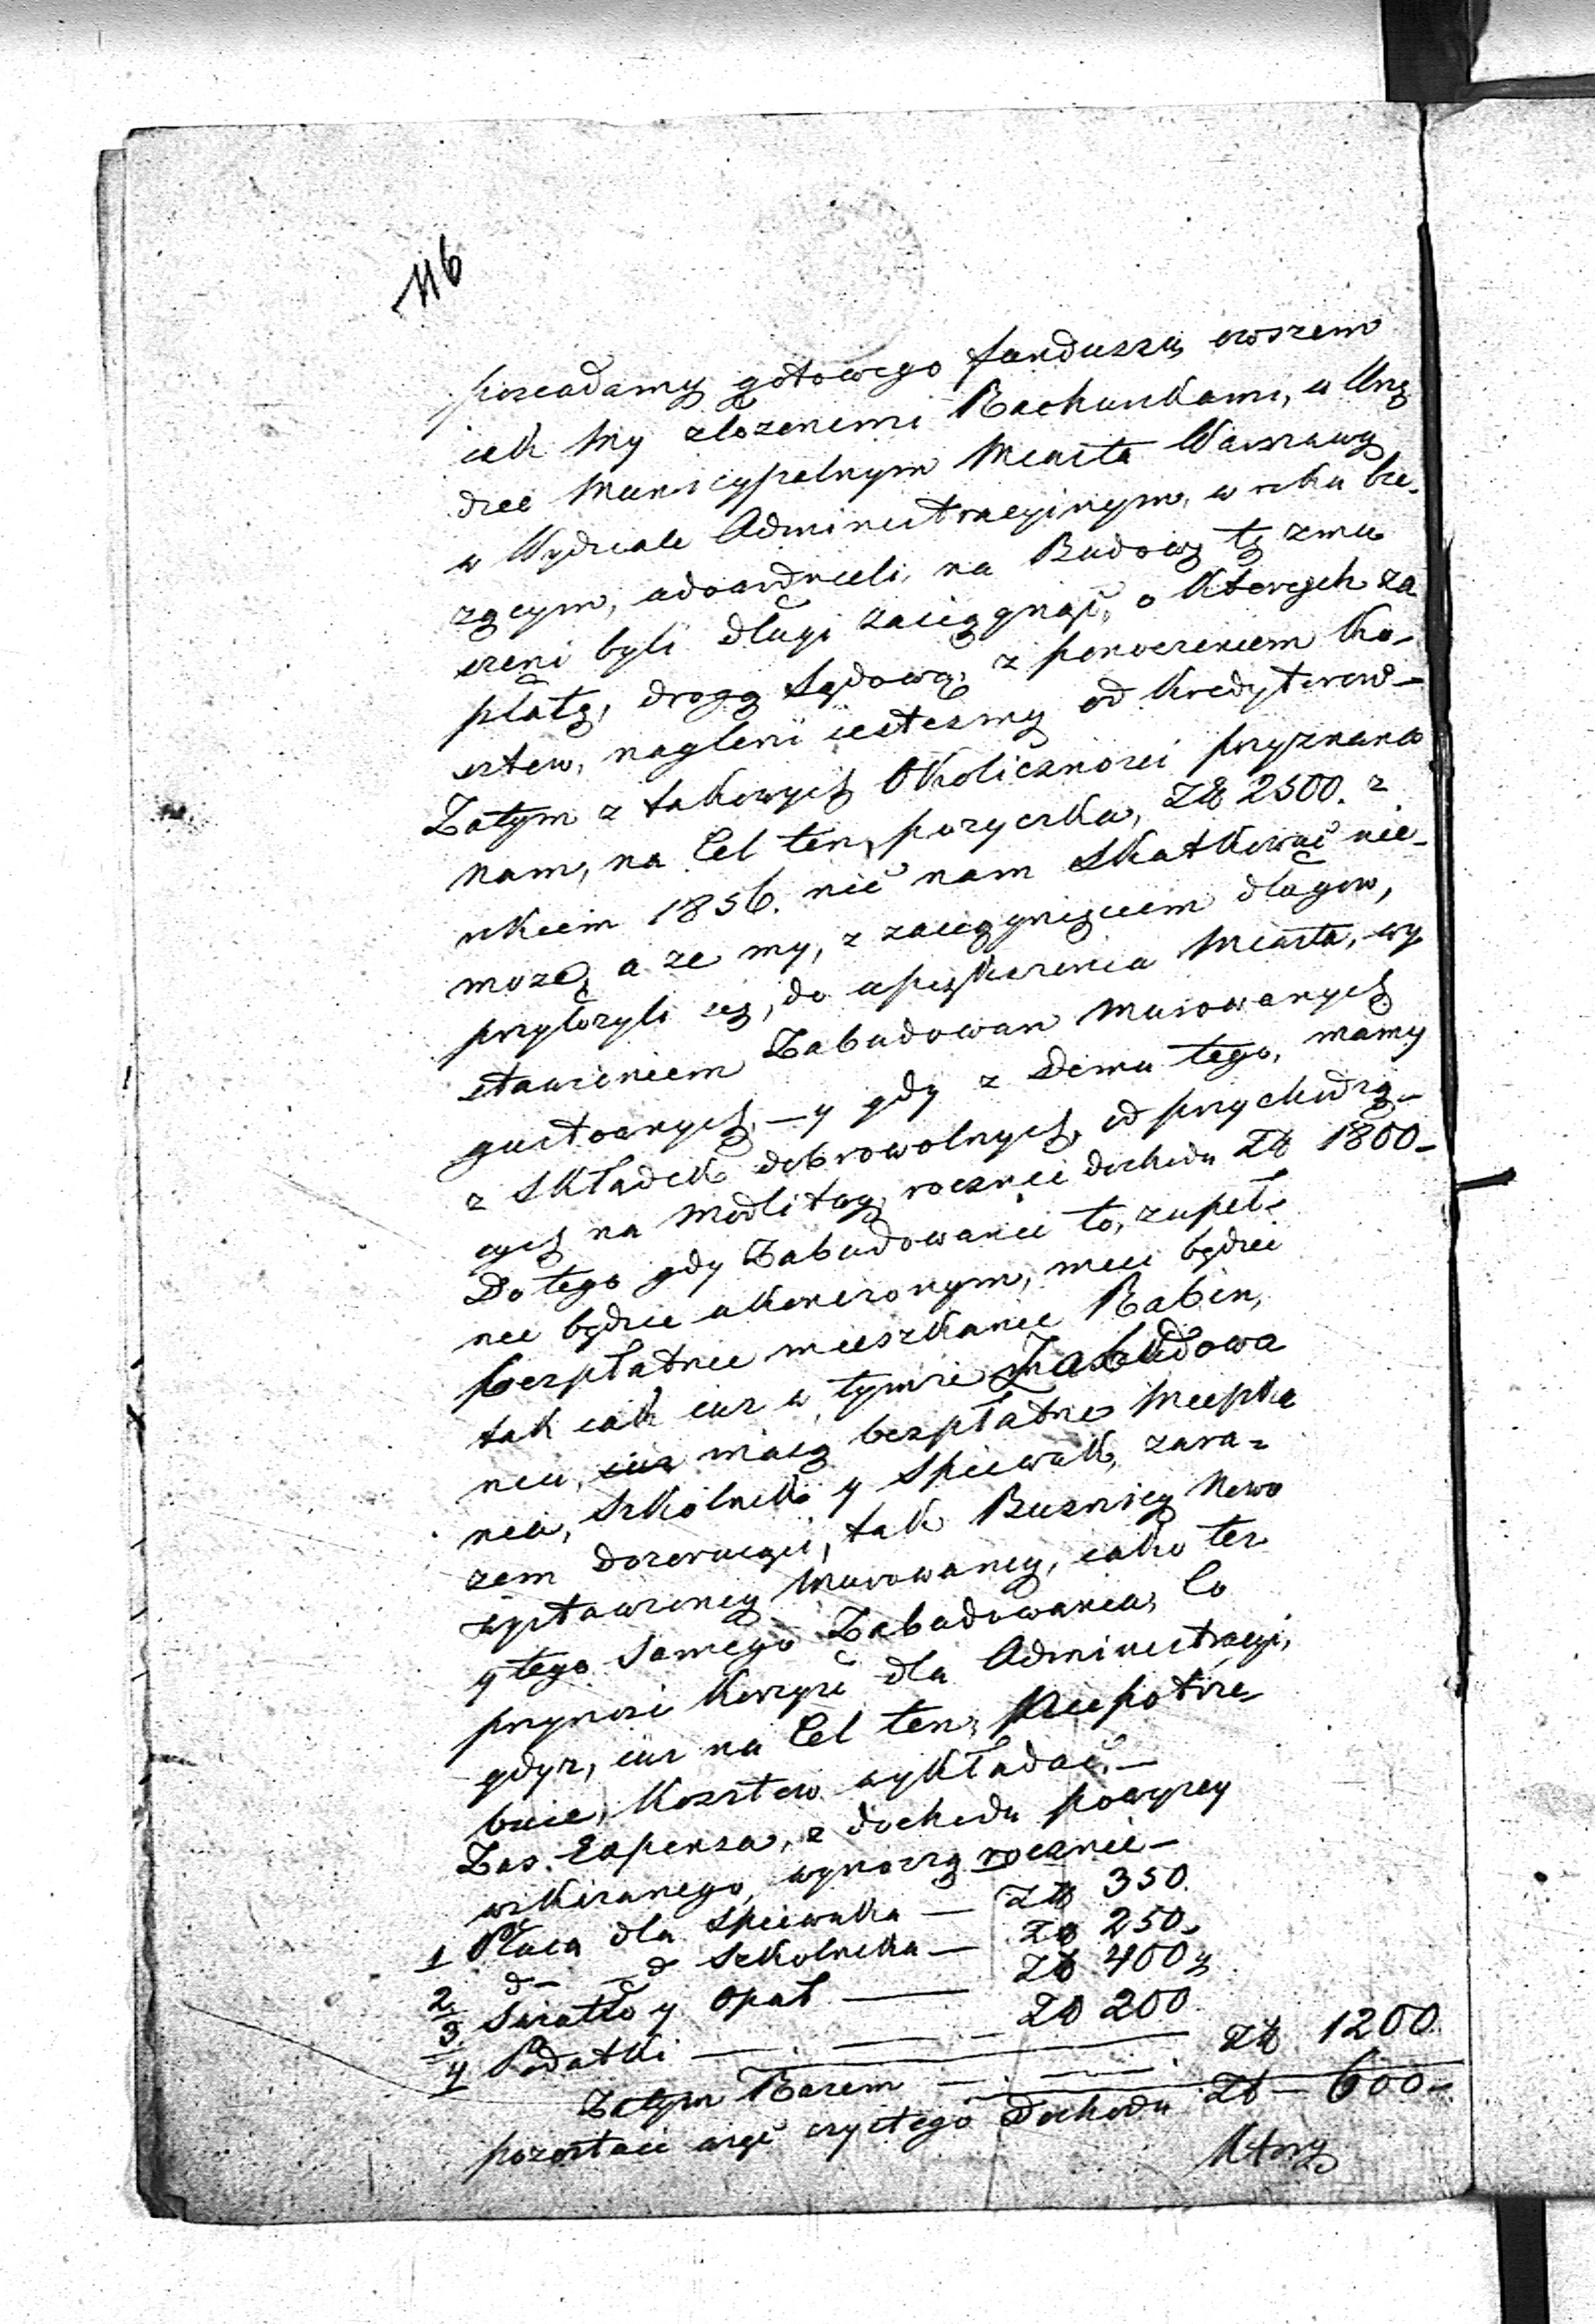 116
posiadamy gotowego funduszu owszem
iak my złożonemi Rachunkami, w Urzę
dzie Municypalnym Miasta Warszawy
w Wydziale Administracyinym, w roku bie-
zącym, udowodnieli, na Budowę tę zmu
szeni byli długi zaciągnąć, o których za
płatę, drogą Sądową, z ponoszeniem Ko-
sztow, nagleni iestesmy od Kredytorow –
Zatym z takowych Okoliczności przyznana
nam, na Cel ten, pozyczka, Zł 2500. z
rokiem 1856. nic nam Skutkować nie-
moze, a ze my, z zaciągnięciem długow,
przyłozyli się, do upięknienia Miasta, wy
stawieniem Zabudowan Murowanych
gustownych, – y gdy z Domu tego, mamy
z Składek dobrowolnych, od przychodzą-
cych na Modlitwy, rocznei dochodu Zł 1800 –
Do tego gdy Zabudowanie to, zupeł-
nie będzie ukonczonym, miei będzie
bezpłatnie mieszkanie Rabin,
tak iak iuz w tymze Zabudowa
niu, maią bezpłatne Mieszka
nia, Szkolnik y Spiewak, zara-
zem dozoruiąci, tak Buznicy Nowo
wystawioney Murowaney, iako tez
y tego Samego Zabudowania, Co
przynosi Korzysć dla Administracyi,
gdyz, iuz na Cel ten, Niepotrze
buie, Kosztow wykładać. –
Zas. Expensa, z dochodu powyzey
wskazanego, wynoszą rocznie –
1 Płaca dla Spiewaka — Zł 350.
2 d– –d Szkolnika — Zł 250
3 Swiatło y Opał —— Zł 400
4 Podatki — — — Zł 200
Zatym Razem — — Zł 1200
pozostaie więc czystego Dochodu Zł – 600 –
Ktory